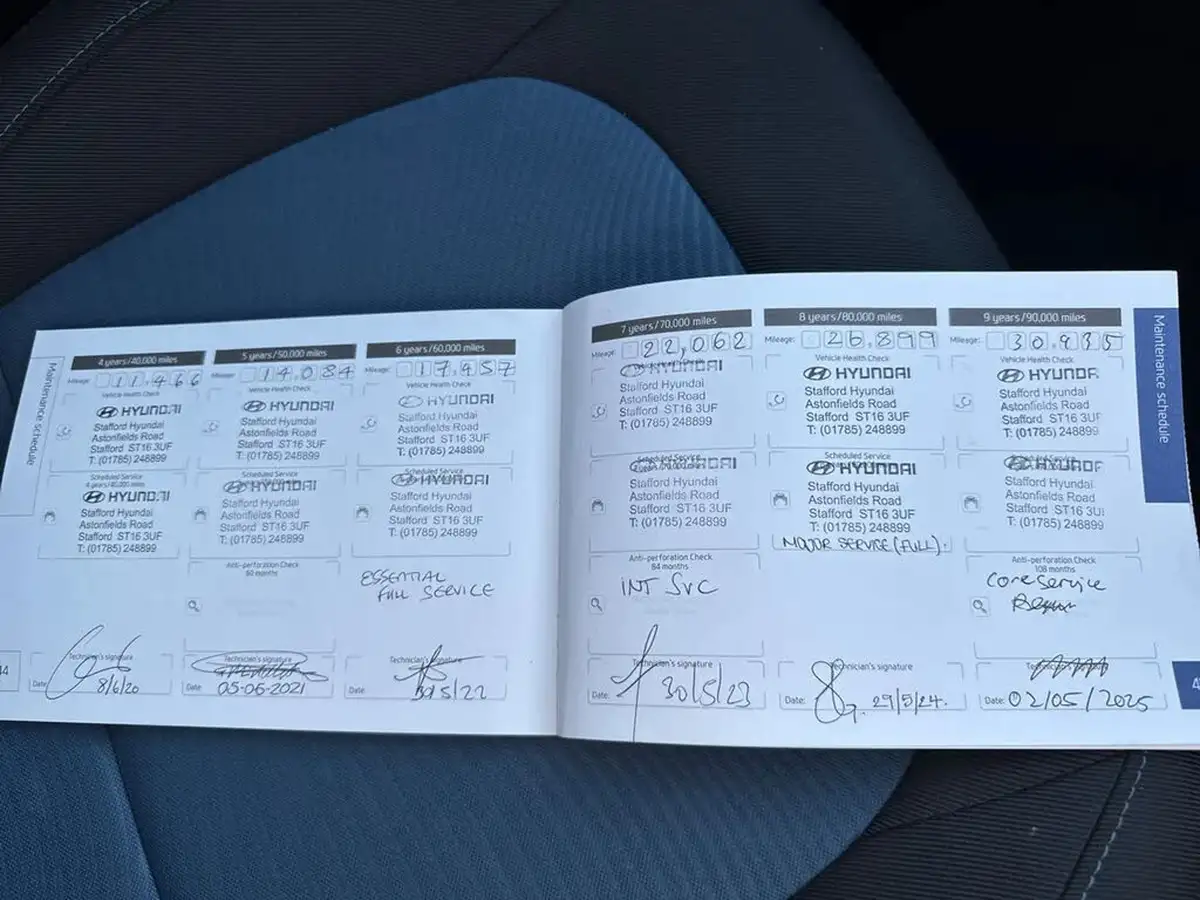 Maintenance schedule
4 years/40,000 miles
Mileage: 11,466
Vehicle Health Check
HYUNDAI
Stafford Hyundai
Astonfields Road
Stafford ST16 3UF
T: (01785) 248899
Scheduled Service
4 years/40,000 miles
HYUNDAI
Stafford Hyundai
Astonfields Road
Stafford ST16 3UF
T: (01785) 248899
Technician's signature
Date: 8/6/20
44
5 years/50,000 miles
Mileage: 14,084
Vehicle Health Check
HYUNDAI
Stafford Hyundai
Astonfields Road
Stafford ST16 3UF
T: (01785) 248899
Scheduled Service
HYUNDAI
Stafford Hyundai
Astonfields Road
Stafford ST16 3UF
T: (01785) 248899
Anti-perforation Check
60 months
Technician's signature
Date: 05-06-2021
6 years/60,000 miles
Mileage: 17,457
Vehicle Health Check
HYUNDAI
Stafford Hyundai
Astonfields Road
Stafford ST16 3UF
T: (01785) 248899
Scheduled Service
HYUNDAI
Stafford Hyundai
Astonfields Road
Stafford ST16 3UF
T: (01785) 248899
ESSENTIAL
FULL SERVICE
Technician's signature
Date: /5/22
7 years/70,000 miles
Mileage: 22,062
Vehicle Health Check
HYUNDAI
Stafford Hyundai
Astonfields Road
Stafford ST16 3UF
T: (01785) 248899
Scheduled Service
HYUNDAI
Stafford Hyundai
Astonfields Road
Stafford ST16 3UF
T: (01785) 248899
Anti-perforation Check
84 months
INT SVC
Technician's signature
Date: 30/5/23
8 years/80,000 miles
Mileage: 26,899
Vehicle Health Check
HYUNDAI
Stafford Hyundai
Astonfields Road
Stafford ST16 3UF
T: (01785) 248899
HYUNDAI
Stafford Hyundai
Astonfields Road
Stafford ST16 3UF
T: (01785) 248899
MAJOR SERVICE (FULL).
Technician's signature
Date: 29/5/24.
9 years/90,000 miles
Mileage: 30,935
Vehicle Health Check
HYUNDAI
Stafford Hyundai
Astonfields Road
Stafford ST16 3UF
T: (01785) 248899
Scheduled Service
HYUNDAI
Stafford Hyundai
Astonfields Road
Stafford ST16 3UF
T: (01785) 248899
Anti-perforation Check
108 months
Core service
Date: 02/05/2025
Maintenance schedule